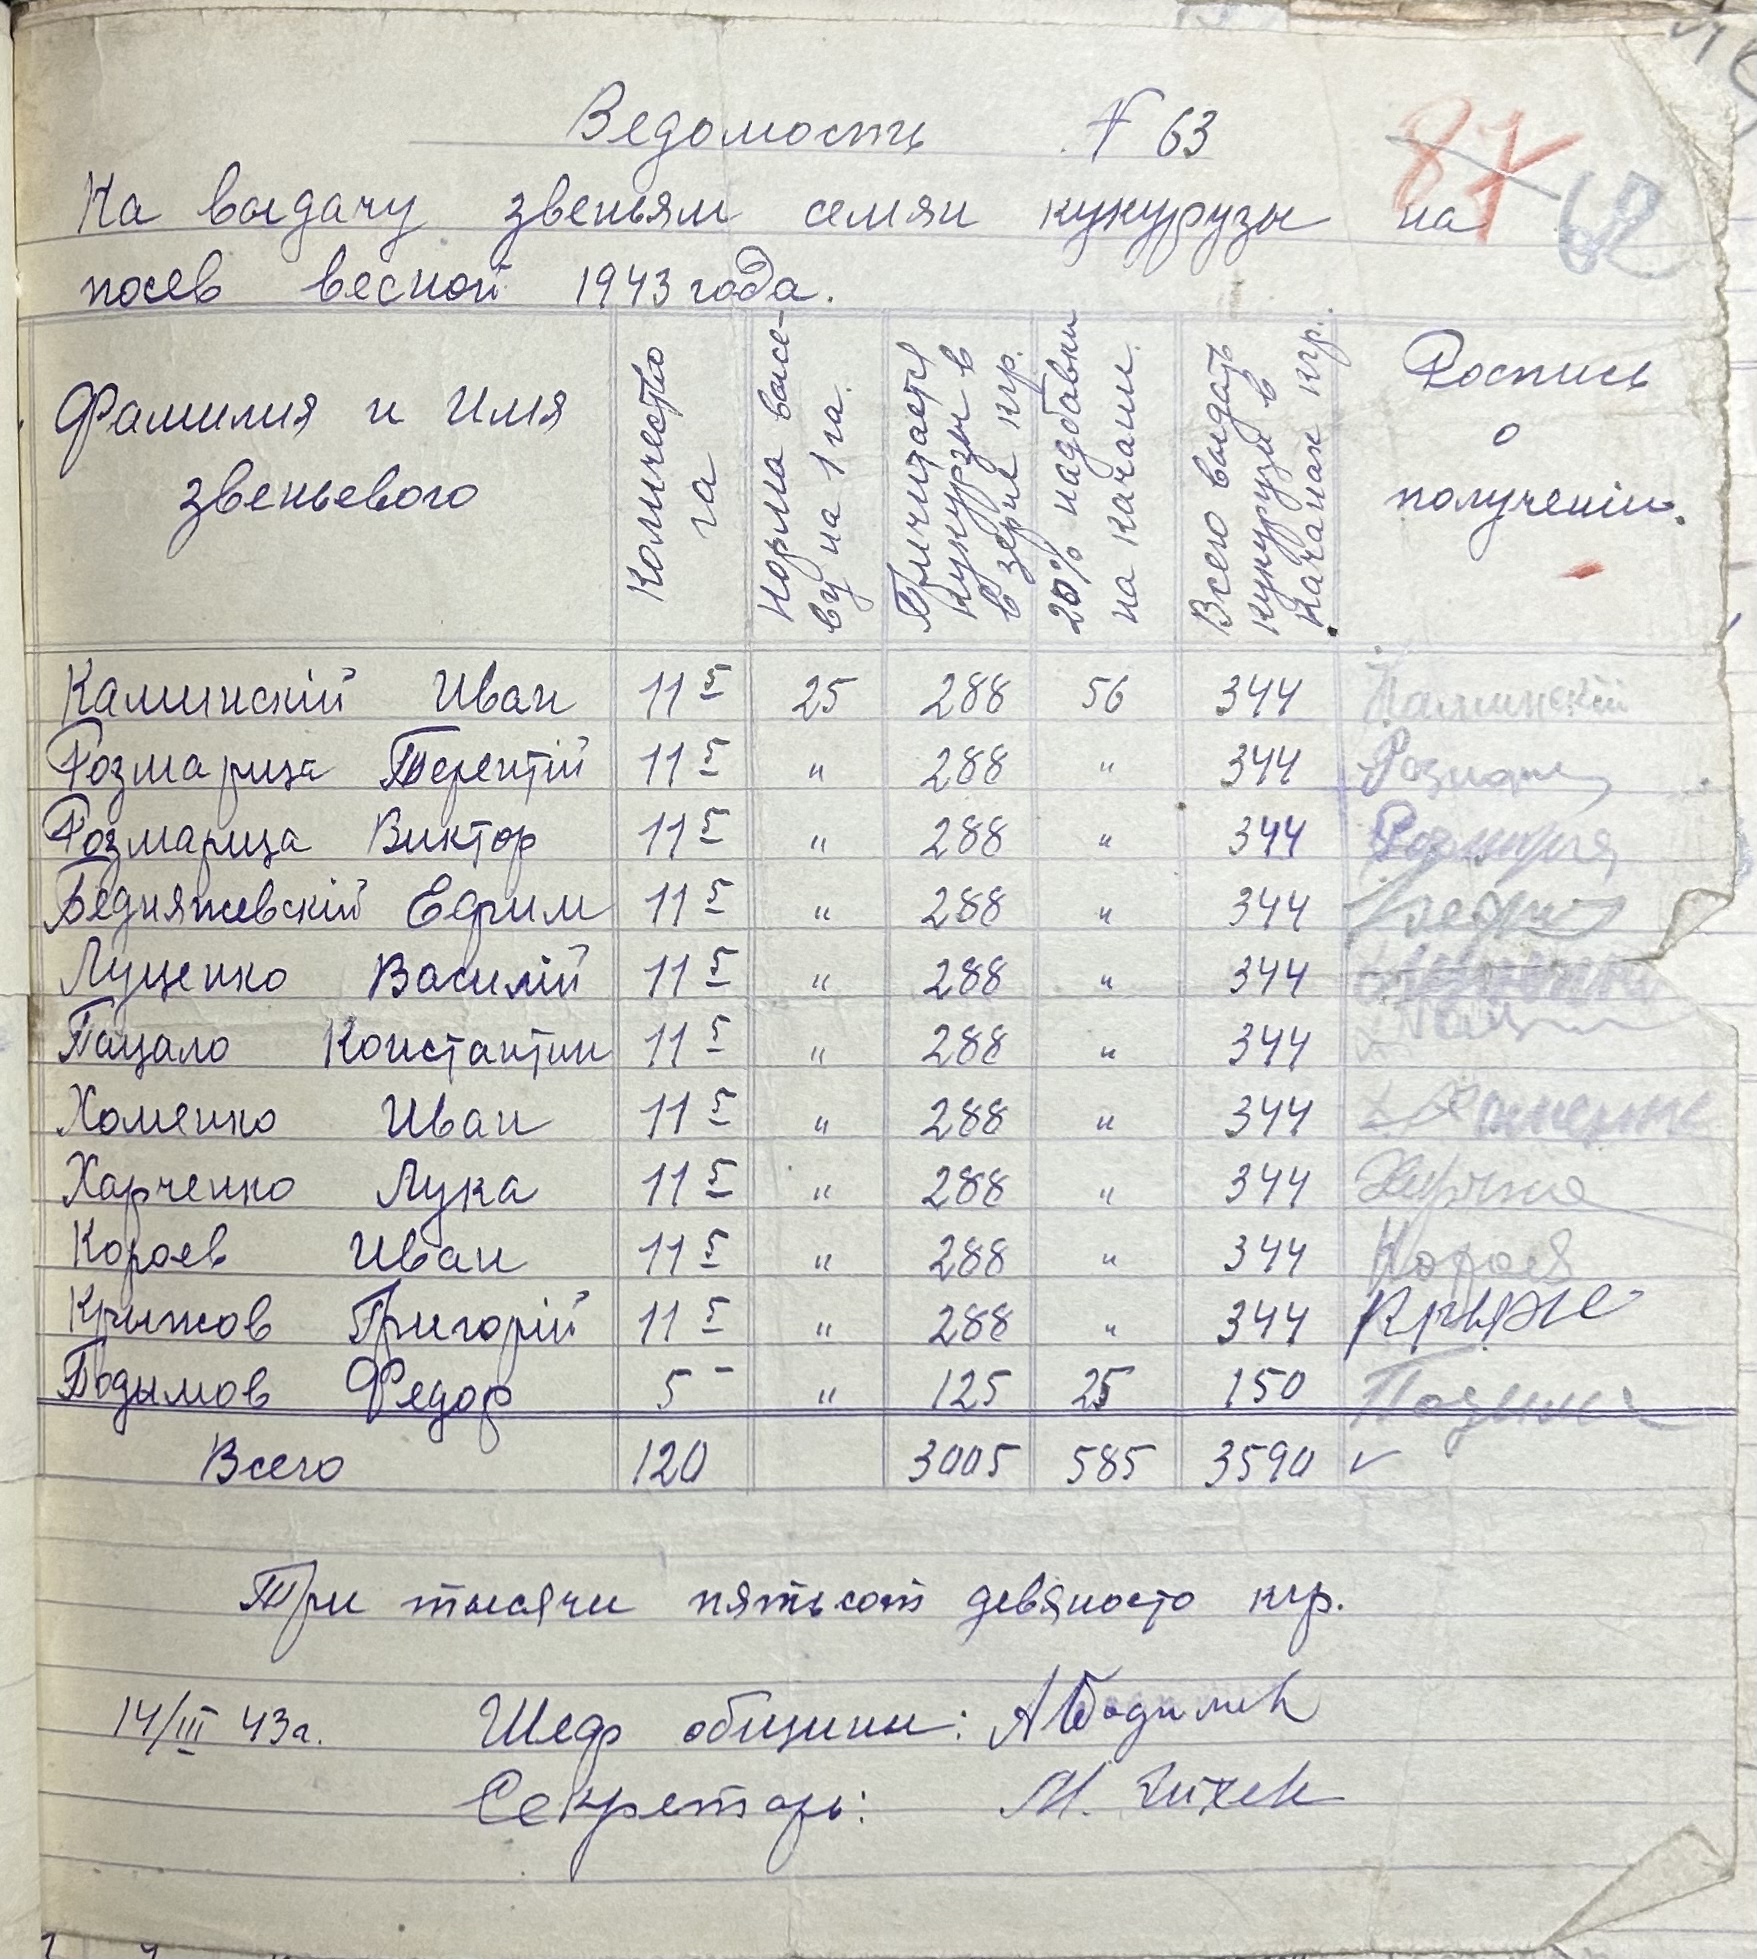 Ведомость № 63
87 62
На выдачу звеньям семян кукурузы на
посев весной 1943 года.
Фамилия и Имя звеньевого | Количество га | Норма высеву на 1 га. | Причитается кукурузы в в зерне кгр. | 20% надбавки на качани. | Всего выдать кукурузы в качанах кгр. | Роспись о получении.
Каминскій Иван 11 5 25 288 56 344 Каминскій
Розмарица Терентій 11 5 " 288 " 344
Розмарица Виктор 11 5 " 288 " 344
Бедняжевскій Ефрим 11 5 " 288 " 344
Луценко Василій 11 5 " 288 " 344
Пацало Константин 11 5 " 288 " 344
Хоменко Иван 11 5 " 288 " 344
Харченко Лука 11 5 " 288 " 344
Короев Иван 11 5 " 288 " 344 Короев
Крыжов Григорій 11 5 " 288 " 344 Крыж
Подымов Федор 5 - " 125 25 150
Всего 120 3005 585 3590 ✓
Три тысячи пятьсот девяносто кгр.
14/III 43г. Шеф общины:
Секретарь: М.